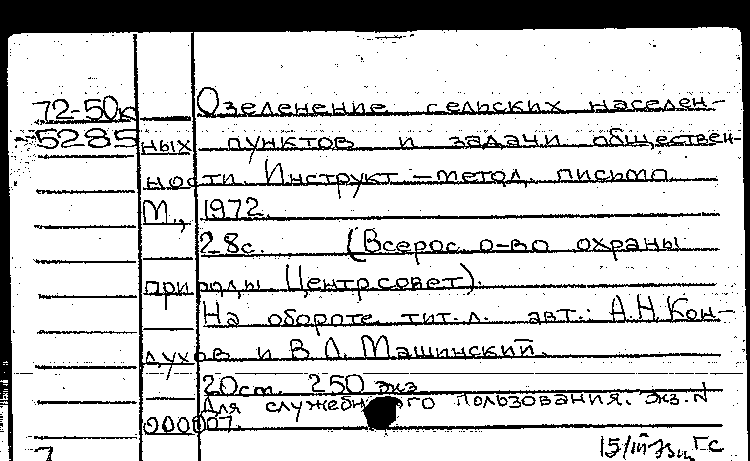 72-50к Озеленение сельских населен-
5285 ных пунктов и задачи обществен-
ности. Инструкт.-метод. письмо.
М., 1972.
28с. (Всерос. о-во охраны
природы. Центр. совет).
На обороте тит. л. авт.: А.Н. Кон-
духов и В.Л. Машинский.
20см. 250 экз.
Для служебного пользования. Экз. N
000007.